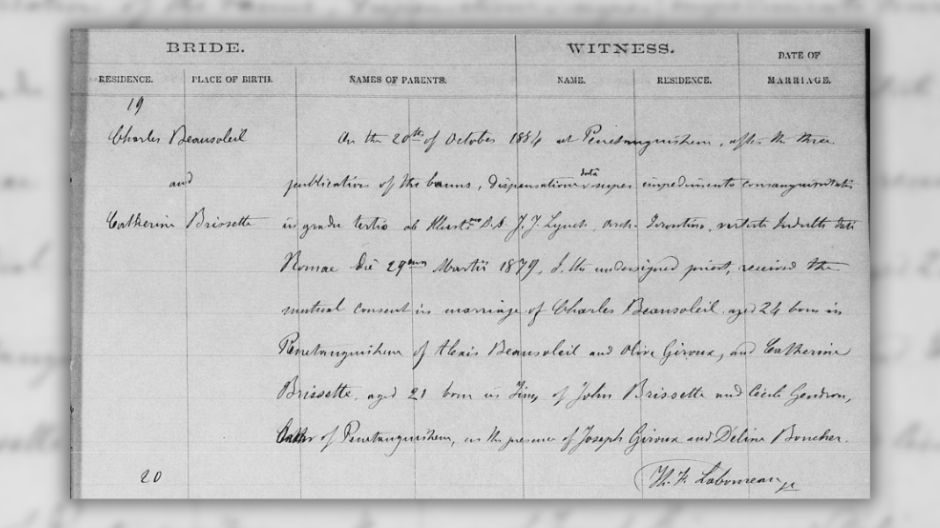 BRIDE. WITNESS. DATE OF
RESIDENCE. PLACE OF BIRTH. NAMES OF PARENTS. NAME. RESIDENCE. MARRIAGE.
19
Charles Beausoleil On the 20th of October 1884 at Penetanguishene, after the three
and publication of the banns, dispensatione data super impedimento consanguinitatis
Catherine Brissette in gradu tertio ab Illustmo D.D. J. J. Lynch, Arch. Torontino, virtute Indulti dati
Romae die 29mo Martii 1879, I, the undersigned priest, received the
mutual consent in marriage of Charles Beausoleil aged 24 born in
Penetanguishene of Alexis Beausoleil and Olive Giroux, and Catherine
Brissette, aged 21 born in Tiny, of John Brissette and Cecile Gendron,
of Penetanguishene, in the presence of Joseph Giroux and Deline Boucher.
20 Th. F. Laboureau